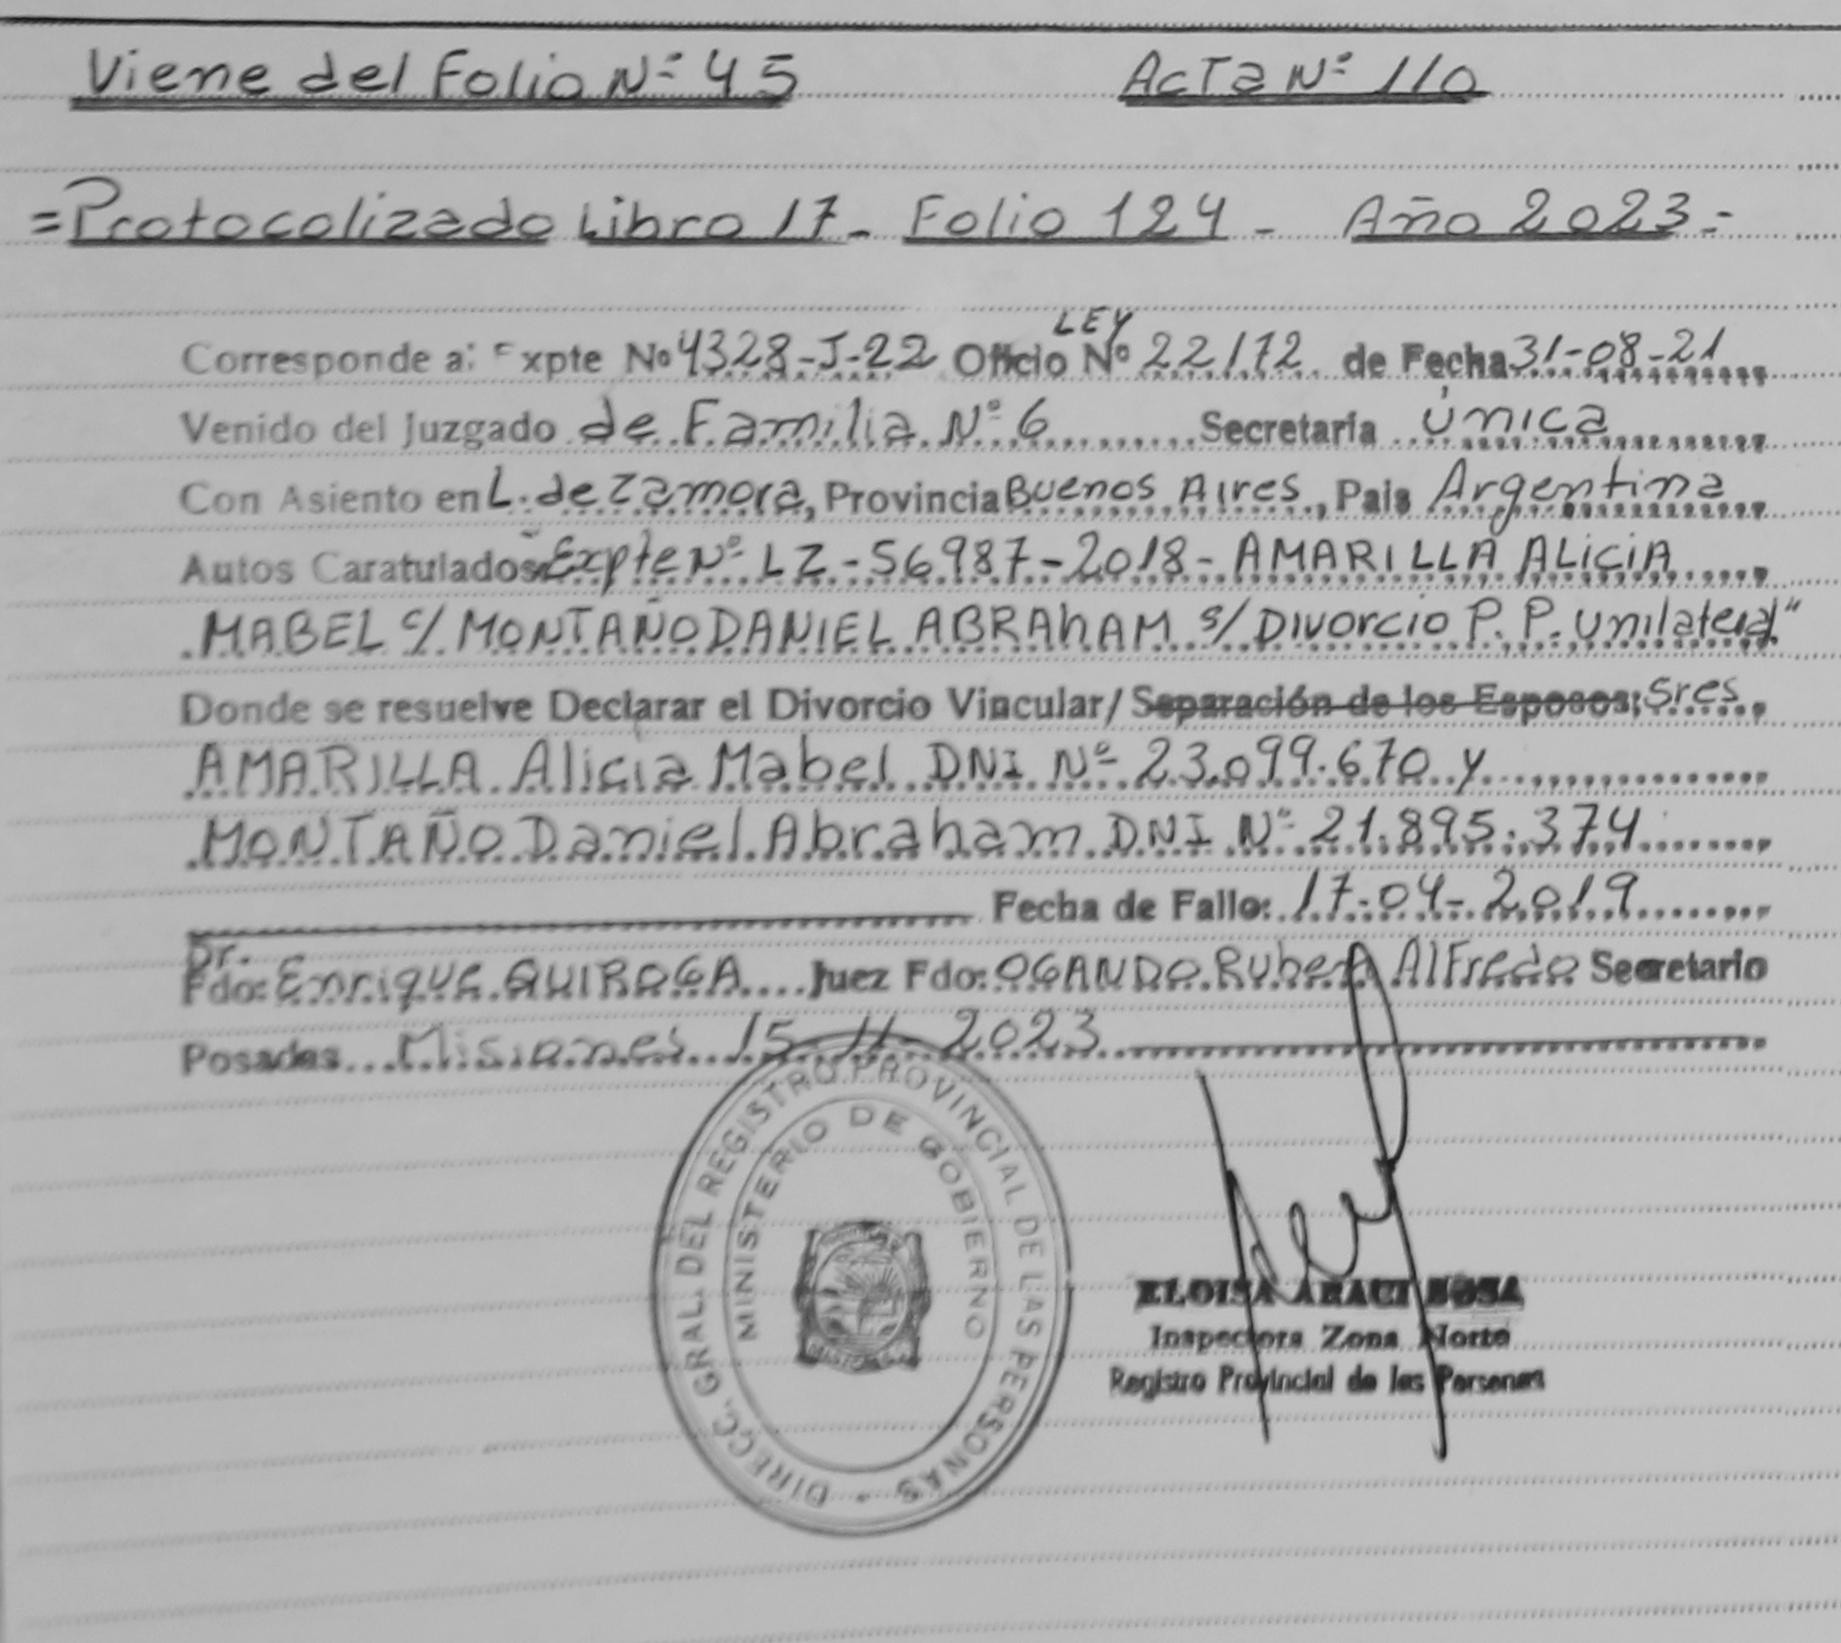 Viene del Folio Nº 45 Acta Nº 110
=Protocolizado Libro 17- Folio 124 - Año 2023=
LEY
Corresponde a: Expte Nº 4328-J-22 Oficio Nº 22172 de Fecha 31-08-21
Venido del Juzgado de Familia Nº 6 Secretaria única
Con Asiento en L. de Zamora, Provincia Buenos Aires, Pais Argentina
Autos Caratulados "Expte Nº LZ-56987-2018- AMARILLA ALICIA
MABEL c/ MONTAÑO DANIEL ABRAHAM s/ Divorcio P.P. unilateral"
Donde se resuelve Declarar el Divorcio Vincular/ Separación de los Esposos: Sres
AMARILLA Alicia Mabel DNI Nº 23.099.670 y
MONTAÑO Daniel Abraham DNI Nº 21.895.374
Fecha de Fallo: 17-04-2019
Dr.
Fdo: Enrique QUIROGA Juez Fdo: OGANDO Ruben Alfredo Secretario
Posadas Misiones 15-11-2023
DIRECC. GRAL. DEL REGISTRO PROVINCIAL DE LAS PERSONAS -
MINISTERIO DE GOBIERNO
MISIONES
ELOISA ARACI SOSA
Inspectora Zona Norte
Registro Provincial de las Personas